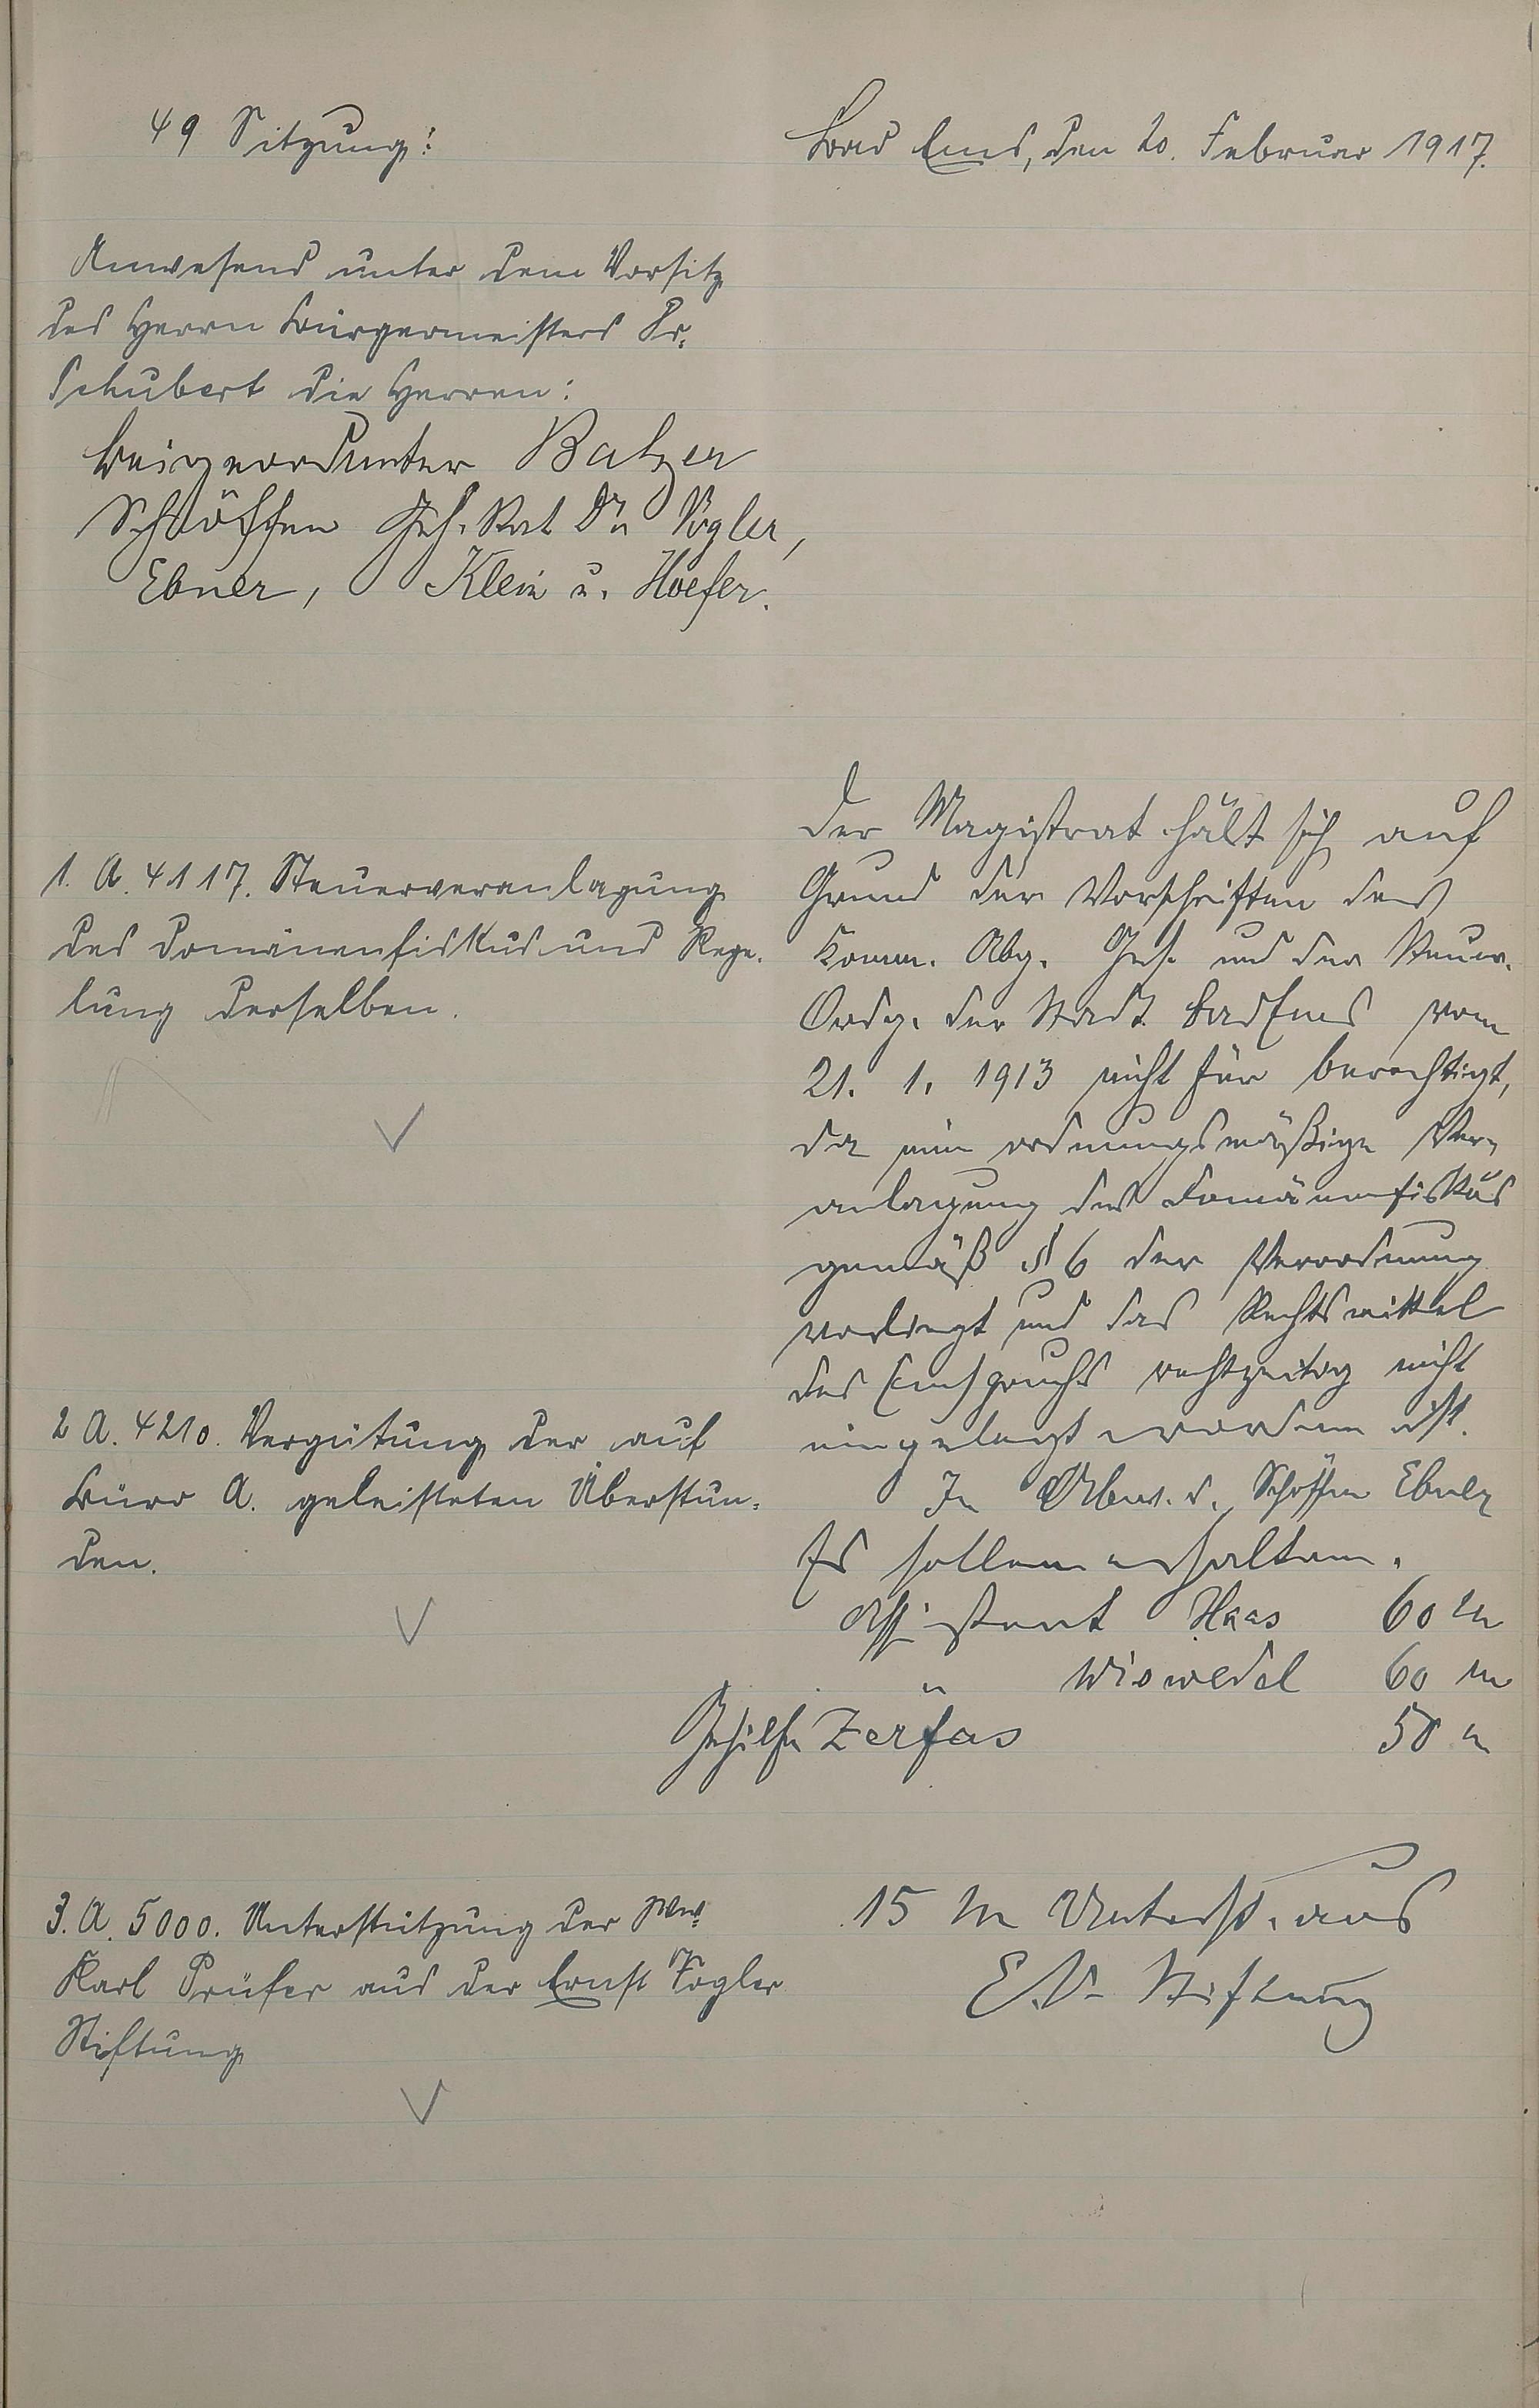 49 Sitzung:
Bad Ems, den 20. Februar 1917.
Anwesend unter dem Vorsitz
des Herrn Bürgermeisters Dr.
Schubert die Herren:
Beigeordneter Balzer
Schöffen Geh. Rat Dr. Vogler,
Ebner, Klein u. Hoefer.
1. A. 4117. Steuerveranlagung
des Domänenfiskus und Rege-
lung derselben.
Der Magistrat hält sich auf
Grund der Vorschriften des
Komm. Abg. Ges. und der Steuer-
Ordg. der Stadt Bad Ems vom
21. 1. 1913 nicht für berechtigt,
da eine ordnungsmäßige Ver-
anlagung des Domänenfiskus
gemäß § 6 der Verordnung
vorliegt und das Rechtsmittel
des Einspruchs rechtzeitig nicht
eingelegt worden ist.
In Abws. d. Schöffen Ebner
2 A. 4210. Vergütung der auf
Büro A. geleisteten Überstun-
den.
Es sollen erhalten.
Assistent Haas 60 M
" Wiswedel 60 M
Gehilfe Zerfas 50 "
3. A. 5000. Unterstützung der Ww.
Karl Prüfer aus der Ernst Vogler
Stiftung
15 M Unterst. aus
E. V. Stiftung